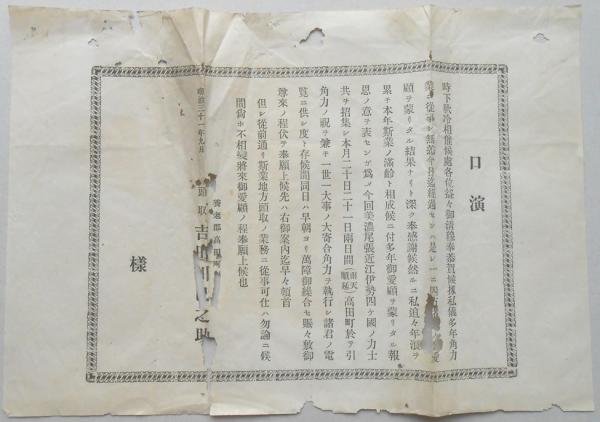 口演
時下秋冷相催候處各位益々御清穆奉恭賀候陳私儀多年角力
業ニ從事シ無 今日迄經過セシハ是レ一ニ 愛
顧ヲ蒙リタル結果ナリト深ク奉感謝候然ルニ私追々年浪ヲ
累子本年斯業ノ滿齡ト相成候ニ付多年御愛顧ヲ蒙リタル報
恩ノ意ヲ表センガ爲メ今回美濃尾張近江伊勢四ケ國ノ力士
共ヲ招集シ本月二十日二十一日兩日間(雨天順延)高田町於ヲ引
角力ノ祝ヲ兼子一世一大事ノ大寄合角力ヲ執行シ諸君ノ電
覧ニ供シ度ト存候間同日ハ早朝ヨリ萬障御繰合セ賑々敷御
尊來ノ程伏ヲ奉願上候先ハ右御案內迄早々頓首
但シ從前通リ斯業地方頭取ノ業務ニ從事可仕ハ勿論ニ候
間尙ホ不相變將來御愛顧ノ程奉願上候也
明治三十一年九月
養老郡高田
頭取 吉 川 之助
樣